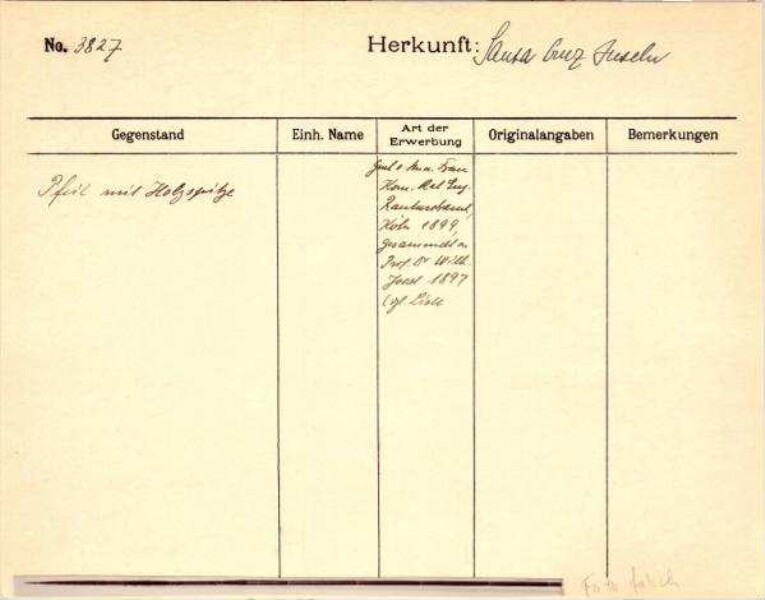 No. 3827
Herkunft: Santa Cruz Inseln
Gegenstand
Einh. Name
Art der Erwerbung
Originalangaben
Bemerkungen
Pfeil mit Holzspitze
Frau
Kom. Rat Eug.
Rautenstrauch,
Köln 1899,
gesammelt v.
Prof. Dr Wilh.
Joest 1897
(vgl. Liste
Foto falsch